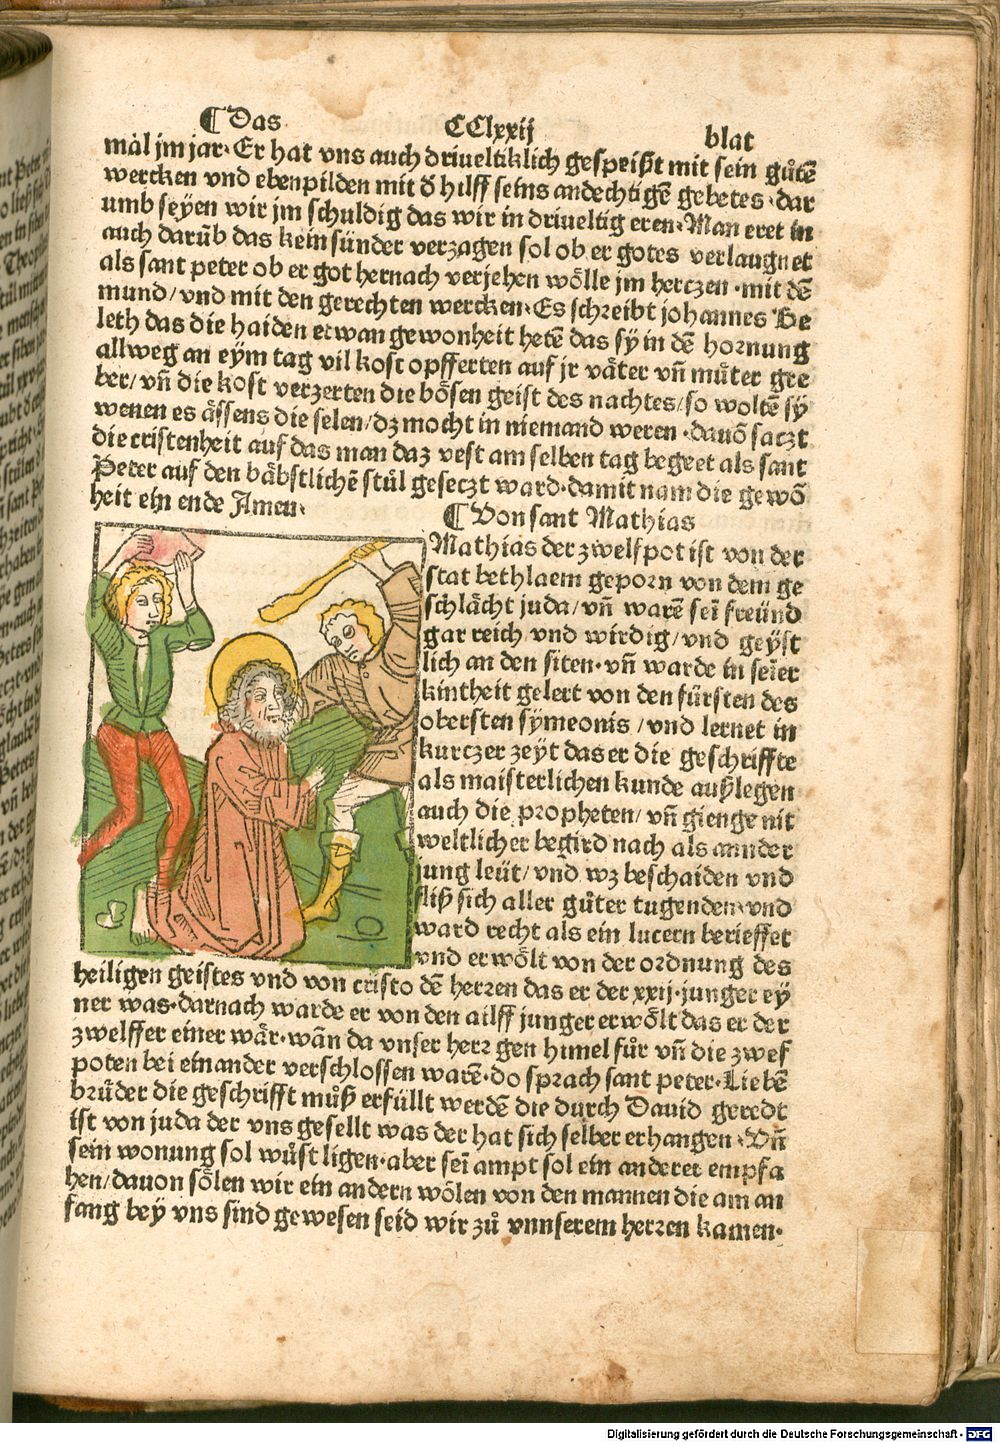 ¶ Das CClxxij blat
mal jm jar· Er hat vns auch driueltiklich gespeißt mit sein gůtē
wercken vnd ebenpilden mit d̕ hilff seins andechtigē gebetes· dar
umb seyen wir jm schuldig das wir in driueltig eren· Man eret in
auch darūb das kein sünder verzagen sol ob er gotes verlaugnet
als sant peter ob er got hernach verjehen wölle jm hertzen · mit dē
mund/ vnd mit den gerechten wercken· Es schreibt johannes Be
leth das die haiden etwan gewonheit hetē das sy in dē hornung
allweg an eym tag vil kost opfferten auf jr väter vn̄ můter gre
ber/ vn̄ die kost verzerten die bösen geist des nachtes/ so woltē sy
wenen es ässens die selen/ dz mocht in niemand weren · dauō saczt
die cristenheit auf das man daz vest am selben tag begeet als sant
Peter auf den bäbstlichē stůl geseczt ward· damit nam die gewō
heit ein ende Amen·
¶ Von sant Mathias
Mathias der zwelfpot ist von der
stat bethlaem geporn von dem ge
schlächt juda/ vn̄ warē sei̅ freünd
gar reich vnd wirdig/ vnd geyst
lich an den siten· vn̄ warde in sei̅er
kintheit gelert von den fürsten des
obersten symeonis /vnd lernet in
kurczer zeyt das er die geschriffte
als maisterlichen kunde außlegen
auch die propheten/ vn̄ gienge nit
weltlicher begird nach als annder
jung leüt/ vnd wz beschaiden vnd
fliß sich aller gůter tugenden· vnd
ward recht als ein lucern berieffet
vnd erwölt von der ordnung des
heiligen geistes vnd von cristo dē herren das er der xxij· junger ey
ner was· darnach warde er von den ailff junger erwölt das er der
zwelffer einer wär· wān da vnser herr gen himel fůr vn̄ die zwef
poten bei einander verschlossen warē· do sprach sant peter· Liebē
brüder die geschrifft můß erfüllt werdē die durch Dauid geredt
ist von juda der vns gesellt was der hat sich selber erhangen · Vn̄
sein wonung sol wůst ligen· aber sei̅ ampt sol ein anderer empfa
hen/ dauon sölen wir ein andern wölen von den mannen die am an
fang bey vns sind gewesen seid wir zů vnnserem herren kamen·
Digitalisierung gefördert durch die Deutsche Forschungsgemeinschaft - DFG